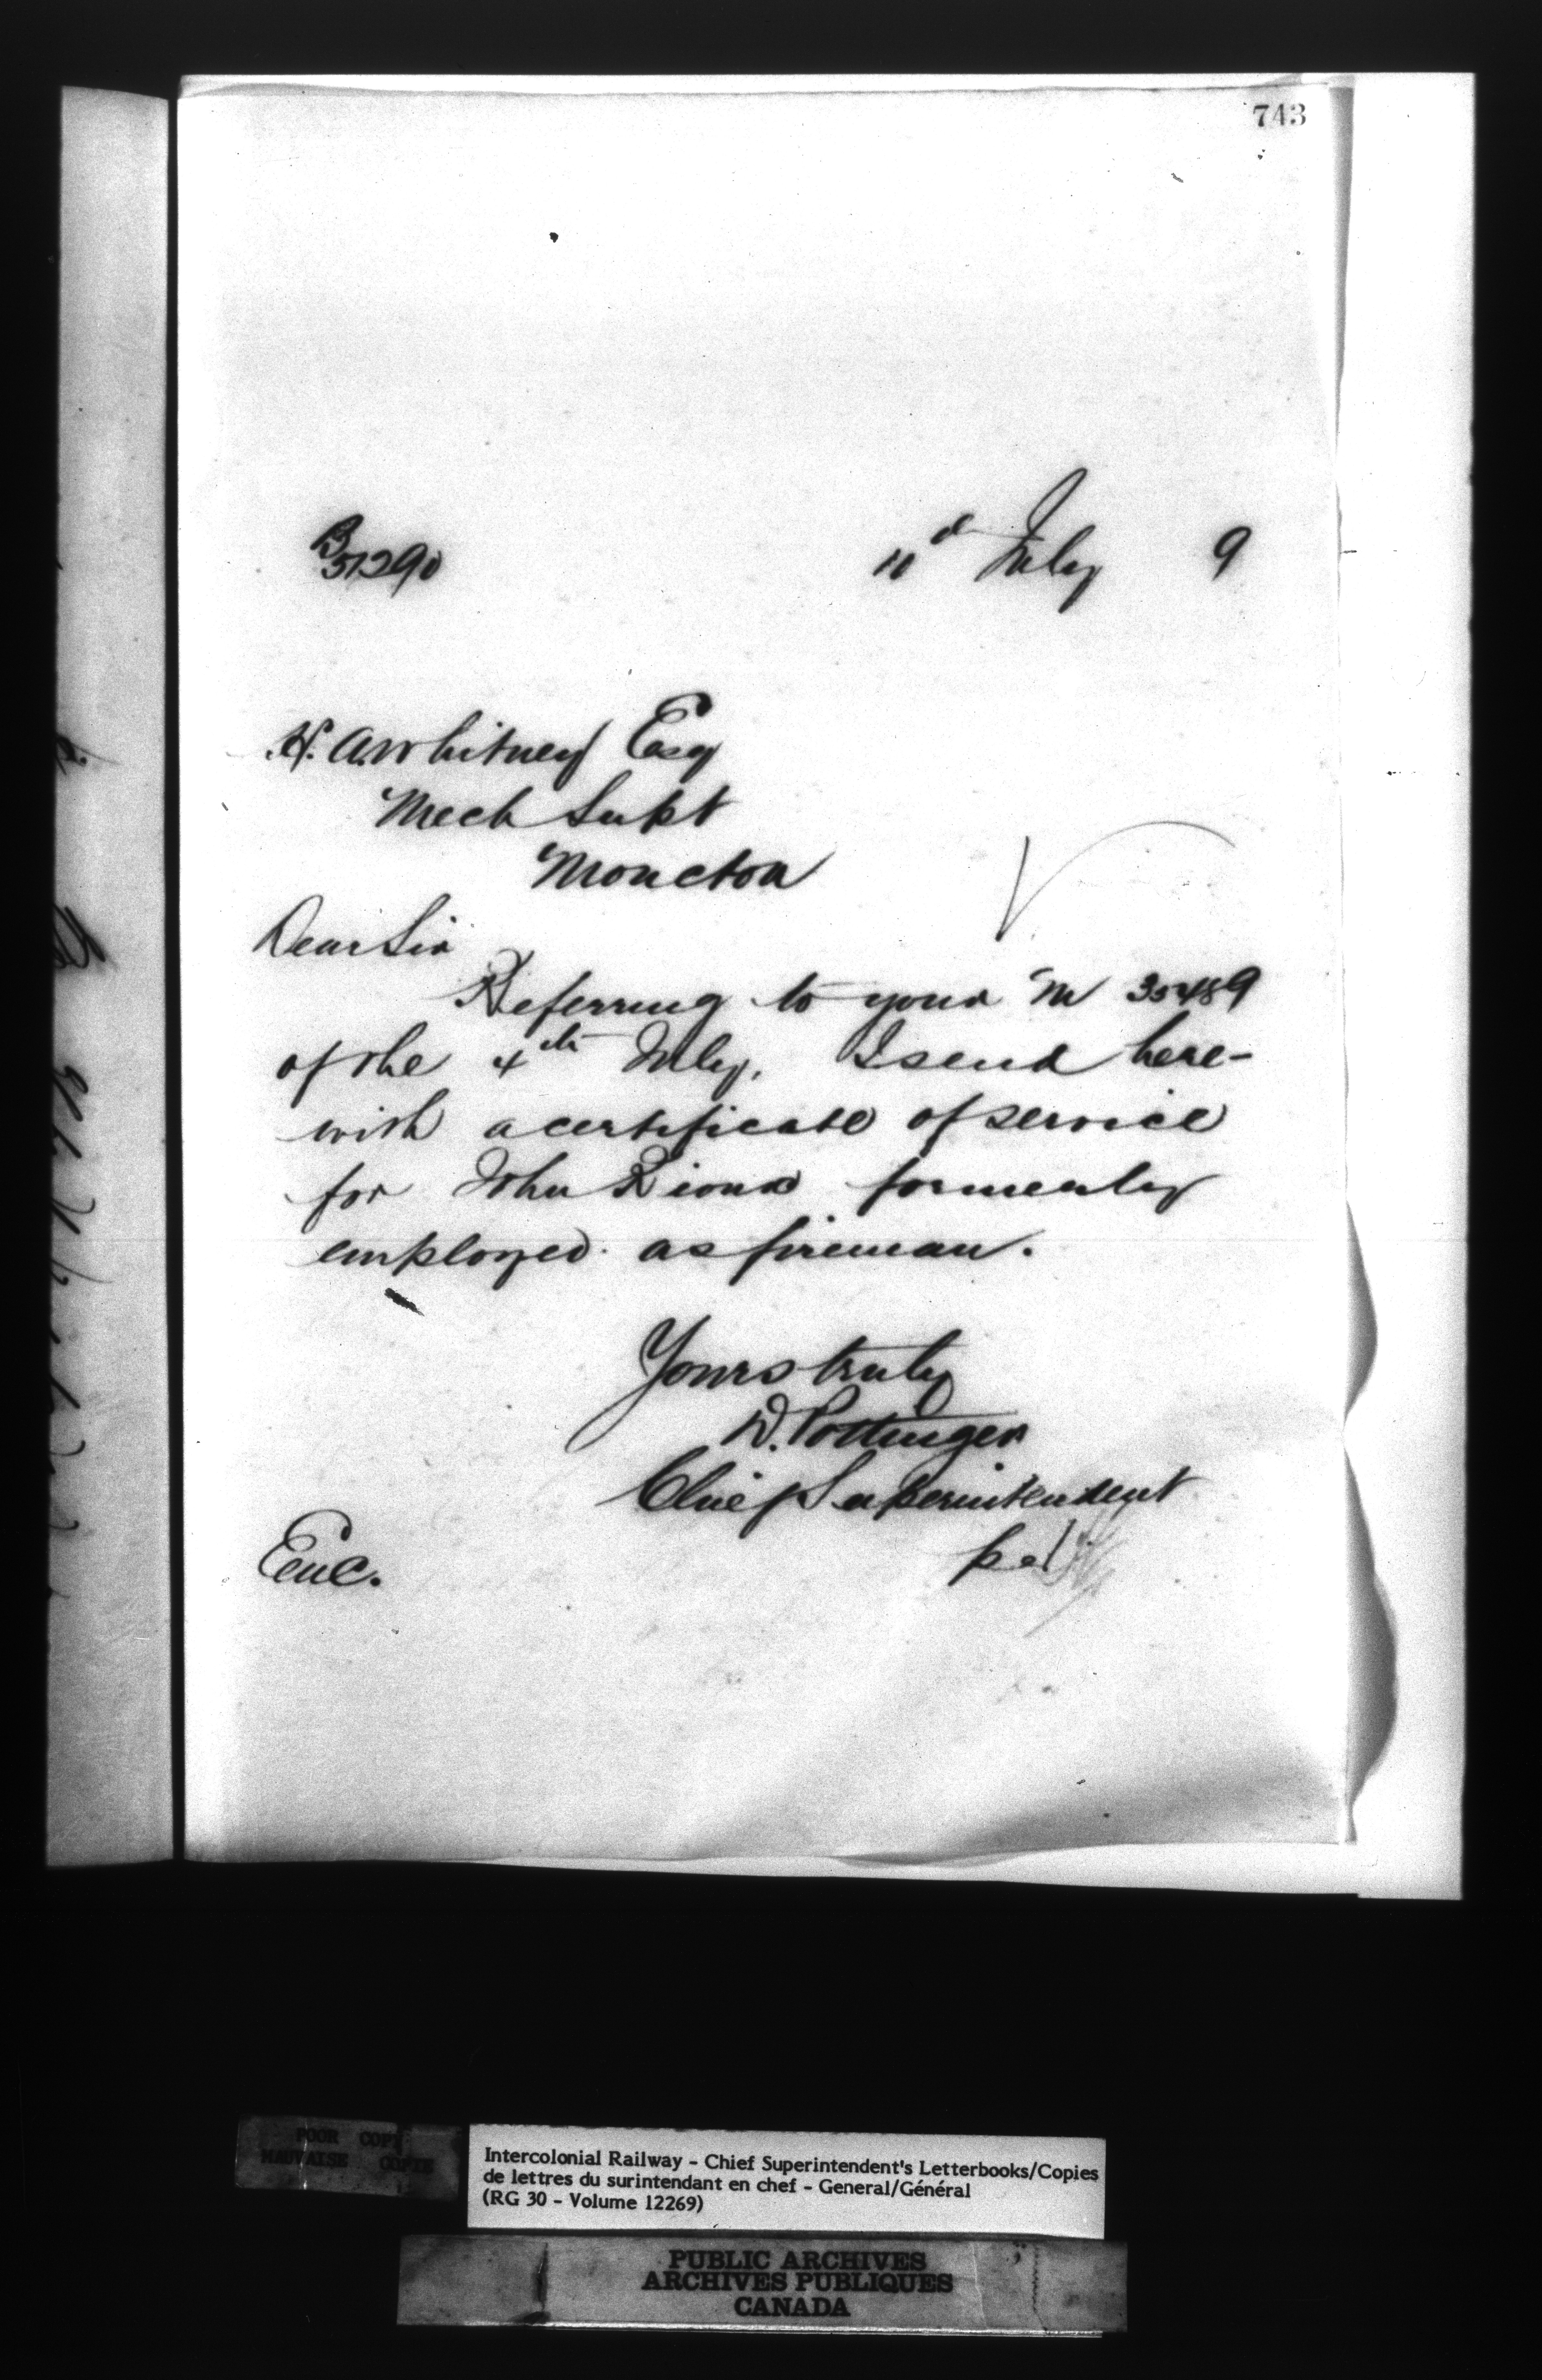 743
B 51290
July 9
H. A. Whitney Esq
Mech Supt
Moncton
Dear Sir
Referring to your M 35489
of the 4th July, I send here-
with a certificate of service
for John formerly
employed as fireman.
Yours truly
D. Pottinger
Chief Superintendent
Enc.
POOR COPY
MAUVAISE COPIE
Intercolonial Railway - Chief Superintendent's Letterbooks/Copies
de lettres du surintendant en chef - General/Général
(RG 30 - Volume 12269)
PUBLIC ARCHIVES
ARCHIVES PUBLIQUES
CANADA